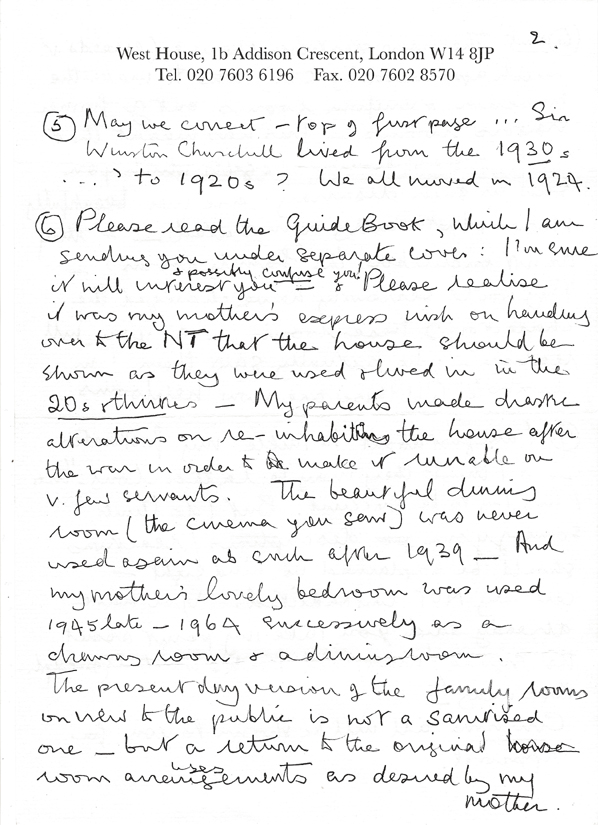 2.
West House, 1b Addison Crescent, London W14 8JP
Tel. 020 7603 6196 Fax. 020 7602 8570
⑤ May we correct – top of first page ... Sir
Winston Churchill lived from the 1930s
...' to 1920s ? We all moved in 1924.
⑥ Please read the Guide Book, which I am
sending you under separate cover : I'm sure
& possibly confuse you!
it will interest you – & Please realise
it was my mother's express wish on handing
over to the NT that the house should be
shown as they were used & lived in in the
20s & thirties – My parents made drastic
alterations on re-inhabiting the house after
the war in order to make it runable on
v. few servants. The beautiful dining
room (the cinema you saw) was never
used again as such after 1939 – And
my mother's lovely bedroom was used
1945 late – 1964 successively as a
drawing room & a dining room.
The present day version of the family rooms
on view to the public is not a sanitised
one – but a return to the original house
uses
room arrangements as desired by my
mother.